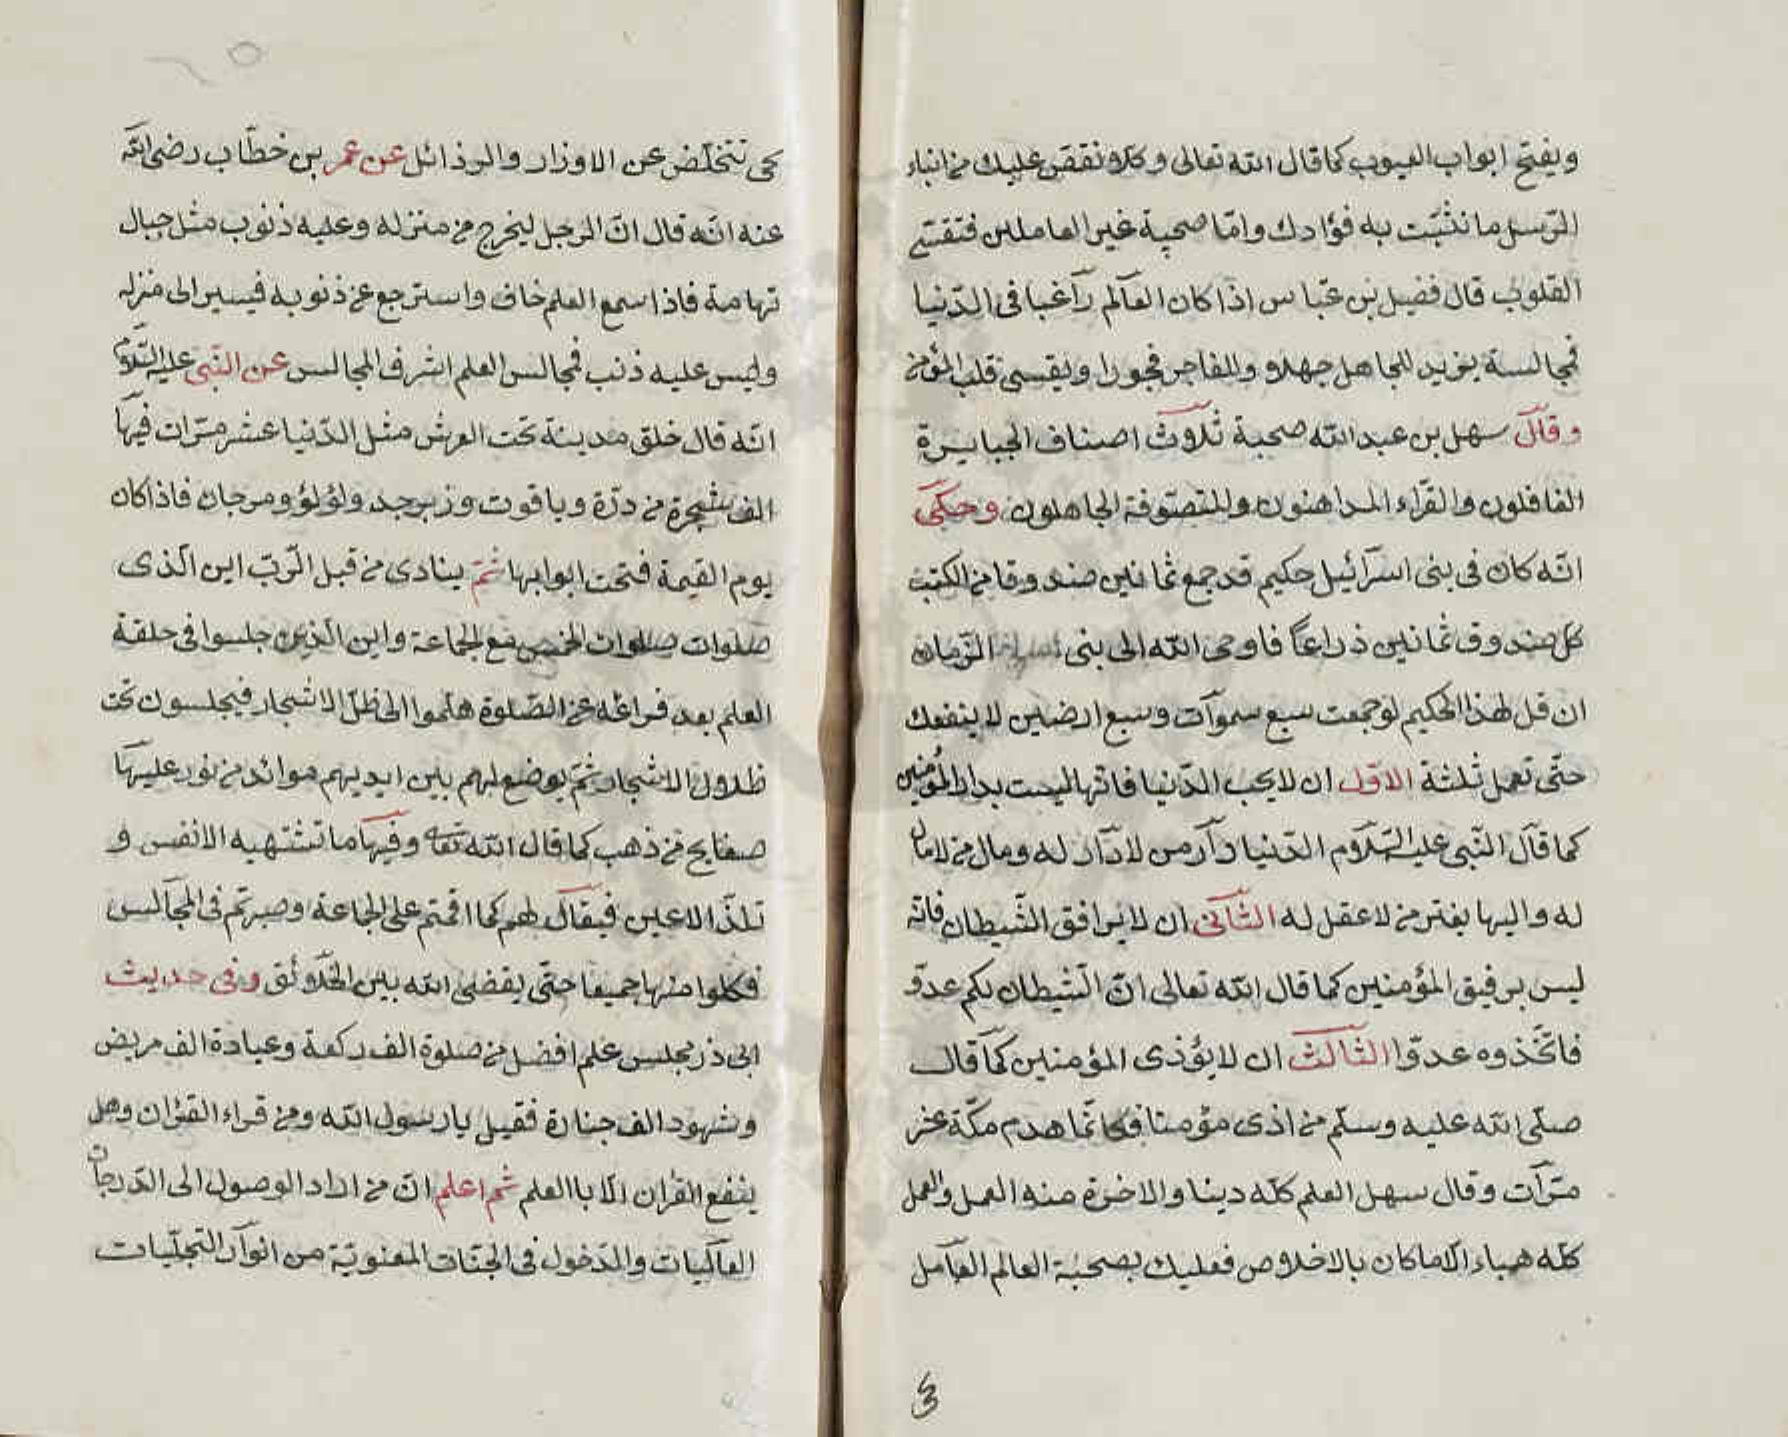 ويفتح ابواب الغيوب كما قال الله تعالى وكلا نقص عليك من انباء
الرّسل ما نثبّت به فؤادك وامّا صحبة غير العاملين فتقسّى
القلوب قال فضيل بن عبّاس اذا كان العالم راغبا فى الدّنيا
فمجالسة يزيد للجاهل جهلا وللفاجر فجورا ويقسى قلب المؤمن
وقال سهل بن عبد الله صحبة ثلاث اصناف الجبابرة
الغافلون والقرّاء المداهنون والمتصوّفة الجاهلون وحكى
انّه كان فى بنى اسرائيل حكيم قد جمع ثمانين صندوقا من الكتب
كل صندوق ثمانين ذراعاً فاوحى الله الى بنى الزّمان
ان قل لهذا الحكيم لو جمعت سبع سموات وسبع ارضين لا ينفعك
حتّى تعمل ثلثة الاوّل ان لا يحب الدّنيا فانّها ليست بدار المؤمنين
كما قال النّبى عليه السّلام الدّنيا دار من لا دار له ومال من لا مال
له واليها يفتر من لا عقل له الثّانى ان لا يرافق الشّيطان فانّه
ليس برفيق المؤمنين كما قال الله تعالى انّ الشّيطان لكم عدوّ
فاتّخذوه عدوّا الثّالث ان لا يؤذى المؤمنين كما قال
صلّى الله عليه وسلّم من اذى مؤمنا فكانّما هدم مكّة عشر
مرّات وقال سهل العلم كلّه دينا والاخرة منه العمل والعمل
كلّه هباء الّا ما كان بالاخلاص فعليك بصحبة العالم العامل
كى تتخلّص عن الاوزار والرذائل عن عمر بن خطّاب رضى الله
عنه انّه قال انّ الرجل ليخرج من منزله وعليه ذنوب مثل جبال
تهامة فاذا سمع العلم خاف واسترجع عن ذنوبه فيسير الى منزله
وليس عليه ذنب فمجالس العلم اشرف المجالس عن النّبى عليه السّلام
انّه قال خلق مدينة تحت العرش مثل الدّنيا عشر مرّات فيها
الف شجرة من درّة وياقوت وزبرجد ولؤلؤ ومرجان فاذا كان
يوم القيمة فتحت ابوابها ثمّ ينادى من قبل الرّبّ اين الّذى
صلوات صلوات الخمس مع الجماعة واين الذين جلسوا فى حلقة
العلم بعد فراغه عن الصّلوة هلموا الى ظلّ الاشجار فيجلسون تحت
ظلال الاشجار ثمّ يوضع لهم بين ايديهم موائد من نور عليها
صفايح من ذهب كما قال الله تعالى وفيها ما تشتهيه الانفس و
تلذّ الاعين فيقال لهم كما اقمتم على الجاعة وصبرتم فى المجالس
فكلوا منها جميعا حتّى يقضى الله بين الخلائق وفى حديث
ابى ذر مجلس علم افضل من صلوة الف ركعة وعيادة الف مريض
وشهود الف جنازة فقيل يا رسول الله ومن قراء القران وهل
ينفع القران الّا باالعلم ثم اعلم انّ من اراد الوصول الى الدّرجات
العاليات والدّخول فى الجنّات المعنويّة من انوار التجلّيات